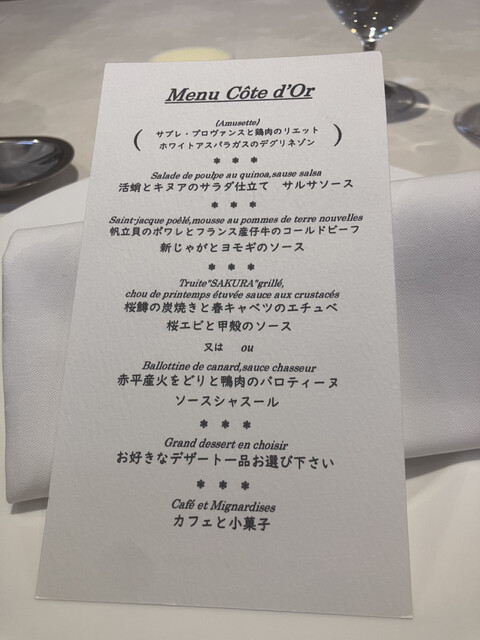 Menu Côte d'Or
(Amusette)
( サブレ・プロヴァンスと鶏肉のリエット )
ホワイトアスパラガスのデグリネゾン
＊ ＊ ＊
Salade de poulpe au quinoa,sause salsa
活蛸とキヌアのサラダ仕立て　サルサソース
＊ ＊ ＊
Saint-jacque poêlé,mousse au pommes de terre nouvelles
帆立貝のポワレとフランス産仔牛のコールドビーフ
新じゃがとヨモギのソース
＊ ＊ ＊
Truite"SAKURA"grillé,
chou de printemps étuvée sauce aux crustacés
桜鱒の炭焼きと春キャベツのエチュベ
桜エビと甲殻のソース
又は　ou
Ballottine de canard,sauce chasseur
赤平産火をどりと鴨肉のバロティーヌ
ソースシャスール
＊ ＊ ＊
Grand dessert en choisir
お好きなデザート一品お選び下さい
＊ ＊ ＊
Café et Mignardises
カフェと小菓子